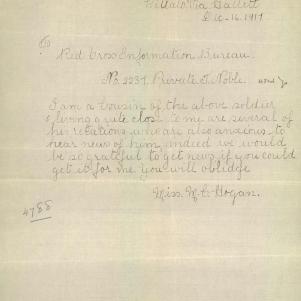 Via
Dec-16.1917
To
Red Cross Information Bureau.
No. 2237. Private J. Noble.
I am a cousin of the above soldier
& living quite close to me are several of
his relations who are also anxious to
hear news of him indeed we would
be so grateful to get news if you could
get it for me you will oblidge
Miss. M. C. Hogan.
4788